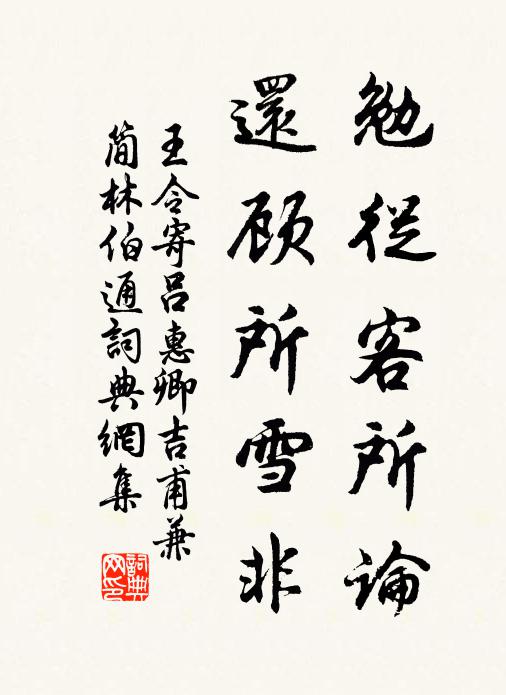 勉從客所論
還顾所雪非
王令寄呂惠卿吉甫兼
简林伯通詞典網集
詞典
网印